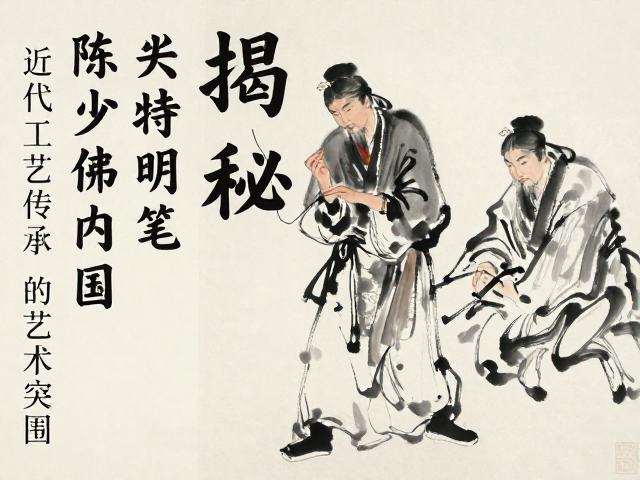 揭秘
特明笔
陈少佛内国
近代工艺传承 的艺术突围